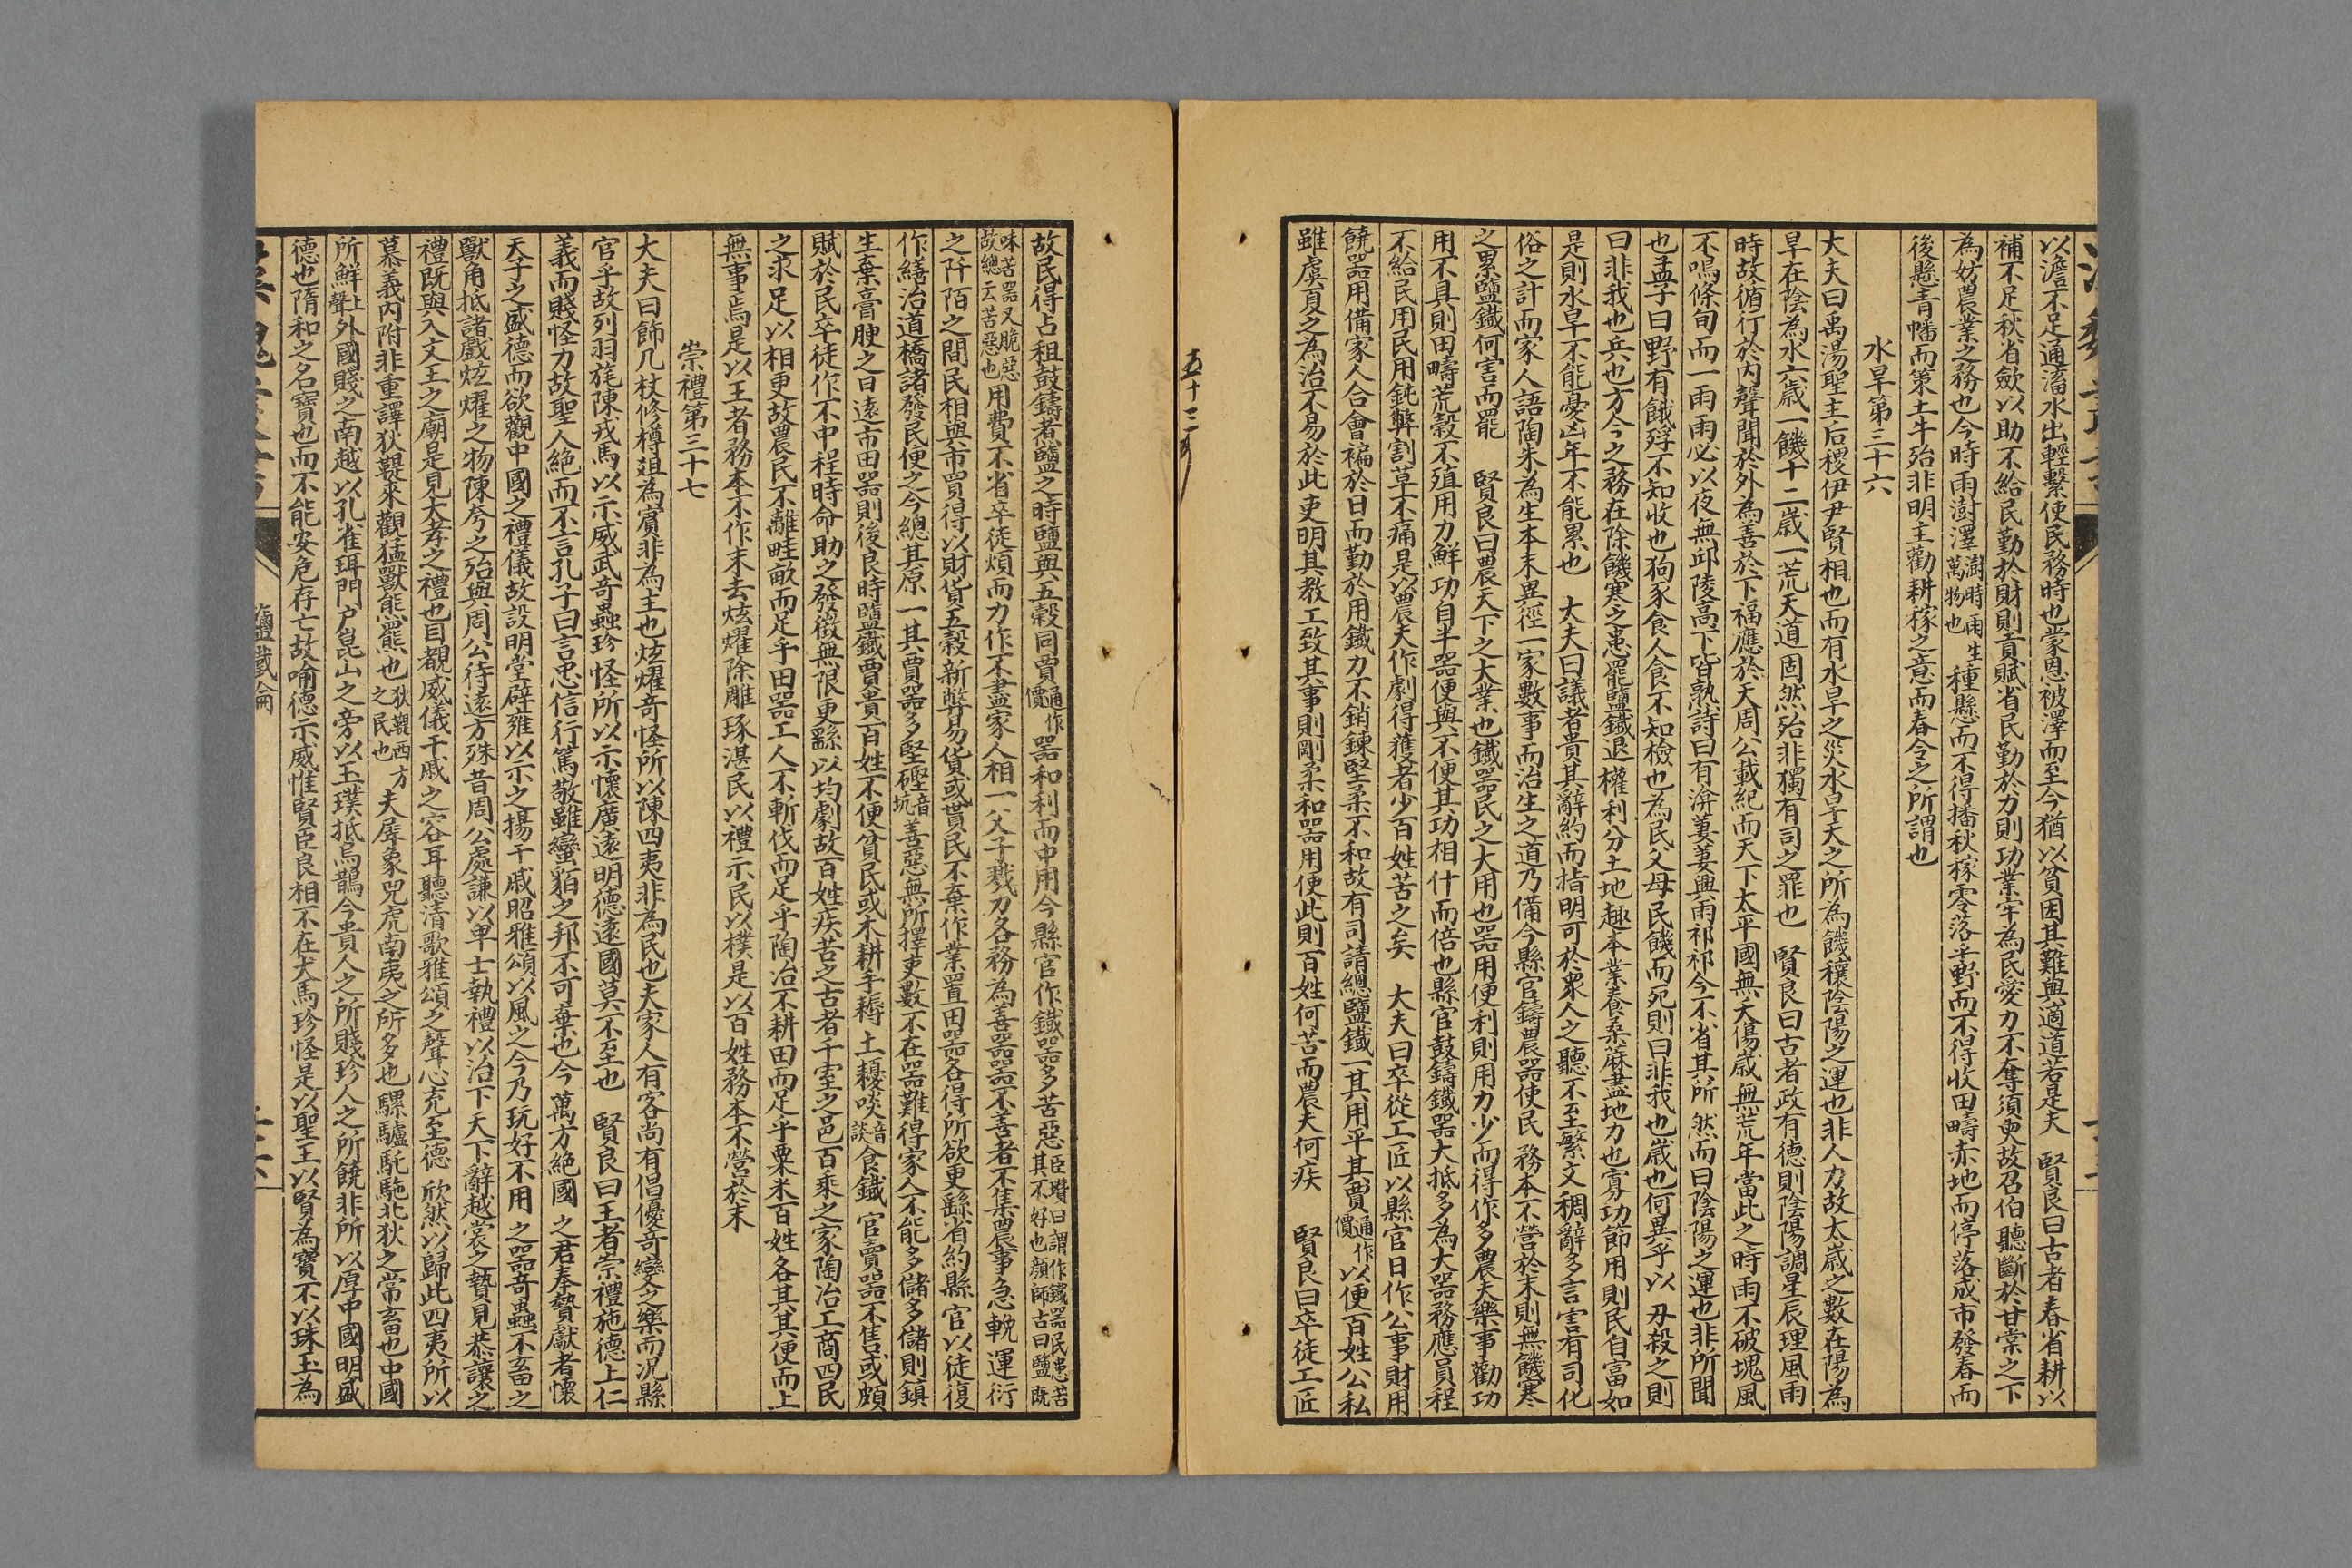 以澹不足通滀水出輕繫使民務時也蒙恩被澤而至今猶以貧困其難與適道若是夫　賢良曰古者春省耕以
補不足秋省斂以助不給民勤於財則貢賦省民勤於力則功業牢為民愛力不奪須臾故召伯聽斷於甘棠之下
為妨農業之務也今時雨澍澤澍時雨生萬物也種懸而不得播秋稼零落乎野而不得收田疇赤地而停落成市發春而
後懸青幡而策土牛殆非明主勸耕稼之意而春令之所謂也
水旱第三十六
大夫曰禹湯聖主后稷伊尹賢相也而有水旱之災水旱天之所為饑穰陰陽之運也非人力故太歲之數在陽為
旱在陰為水六歲一饑十二歲一荒天道固然殆非獨有司之罪也　賢良曰古者政有德則陰陽調星辰理風雨
時故循行於內聲聞於外為善於下福應於天周公載紀而天下太平國無夭傷歲無荒年當此之時雨不破塊風
不鳴條旬而一雨雨必以夜無邱陵高下皆熟詩曰有渰萋萋興雨祁祁今不省其所然而曰陰陽之運也非所聞
也孟子曰野有餓殍不知收也狗豕食人食不知檢也為民父母民饑而死則曰非我也歲也何異乎以刃殺之則
曰非我也兵也方今之務在除饑寒之患罷鹽鐵退權利分土地趣本業養桑蔴盡地力也寡功節用則民自富如
是則水旱不能憂凶年不能累也　大夫曰議者貴其辭約而指明可於衆人之聽不至繁文稠辭多言害有司化
俗之計而家人語陶朱為生本末異徑一家數事而治生之道乃備今縣官鑄農器使民務本不營於末則無饑寒
之累鹽鐵何害而罷　賢良曰農天下之大業也鐵器民之大用也器用便利則用力少而得作多農夫樂事勸功
用不具則田疇荒穀不殖用力鮮功自半器便與不便其功相什而倍也縣官鼓鑄鐵器大抵多為大器務應員程
不給民用民用鈍弊割草不痛是以農夫作劇得獲者少百姓苦之矣　大夫曰卒從工匠以縣官日作公事財用
饒器用備家人合會褊於日而勤於用鐵力不銷鍊堅柔不和故有司請總鹽鐵一其用平其賈通作價以便百姓公私
雖虞夏之為治不易於此吏明其教工致其事則剛柔和器用便此則百姓何苦而農夫何疾　賢良曰卒徒工匠
五十三
故民得占租鼓鑄煮鹽之時鹽與五穀同賈通作價器和利而中用今縣官作鐵器多苦惡臣瓚曰謂作鐵器民患苦其不好也顏師古曰鹽既
味苦器又脆惡故總云苦惡也用費不省卒徒煩而力作不盡家人相一父子戮力各務為善器器不善者不集農事急輓運衍
之阡陌之間民相與市買得以財貨五穀新弊易貨或貰民不棄作業置田器各得所欲更繇省約縣官以徒復
作繕治道橋諸發民便之今總其原一其賈器多堅䃘音坑善惡無所擇吏數不在器難得家人不能多儲多儲則鎮
生棄膏腴之日遠市田器則後良時鹽鐵賈貴百姓不便貧民或木耕手耨土耰啖音談食鐵官賣器不售或頗
賦於民卒徒作不中程時命助之發徵無限更繇以均劇故百姓疾苦之古者千室之邑百乘之家陶冶工商四民
之求足以相更故農民不離畦畝而足乎田器工人不斬伐而足乎陶冶不耕田而足乎粟米百姓各其其便而上
無事焉是以王者務本不作末去炫燿除雕琢湛民以禮示民以樸是以百姓務本不營於末
崇禮第三十七
大夫曰飾几杖修樽俎為賓非為主也炫燿奇怪所以陳四夷非為民也夫家人有客尚有倡優奇變之樂而況縣
官乎故列羽旄陳戎馬以示威武奇蟲珍怪所以示懷廣遠明德遠國莫不至也　賢良曰王者崇禮施德上仁
義而賤怪力故聖人絶而不言孔子曰言忠信行篤敬雖蠻貊之邦不可棄也今萬方絶國之君奉贄獻者懷
天子之盛德而欲觀中國之禮儀故設明堂辟雍以示之揚干戚昭雅頌以風之今乃玩好不用之器奇蟲不畜之
獸角抵諸戲炫燿之物陳夸之殆與周公待遠方殊昔周公處謙以卑士執禮以治下天下辭越裳之贄見恭讓之
禮既與入文王之廟是見大孝之禮也目覩威儀干戚之容耳聽清歌雅頌之聲心充至德欣然以歸此四夷所以
慕義內附非重譯狄鞮來觀猛獸熊羆也狄鞮西方之民也夫犀象兕虎南夷之所多也騾驢馲駞北狄之常畜也中國
所鮮上聲外國賤之南越以孔雀珥門户崑山之旁以玉璞抵烏鵲今貴人之所賤珍人之所饒非所以厚中國明盛
德也隋和之名寶也而不能安危存亡故喻德示威惟賢臣良相不在犬馬珍怪是以聖王以賢為寶不以珠玉為
鹽鐵論